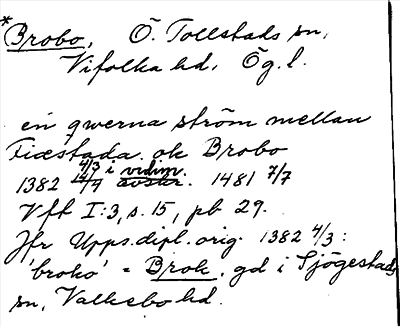 * Brobo, Ö. Tollstads sn,
Vifolka hd, Ög. l.
en qwerna ström mellan
Fiæstada ok Brobo
1382 4/3 i vidim. avskr. 1481 7/7
Vft I:3, s. 15, pb 29.
Jfr Upps.dipl. orig. 1382 4/3:
'broko' = Brok, gd i Sjögestads
sn, Valkebo hd.